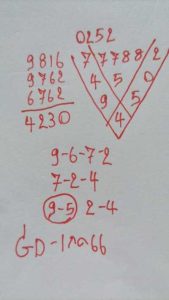 0252
9816
9762
6762
4230
7 7 7 8 8 2
4 5 0
9 5
4
9-6-7-2
7-2-4
9-5 2-4